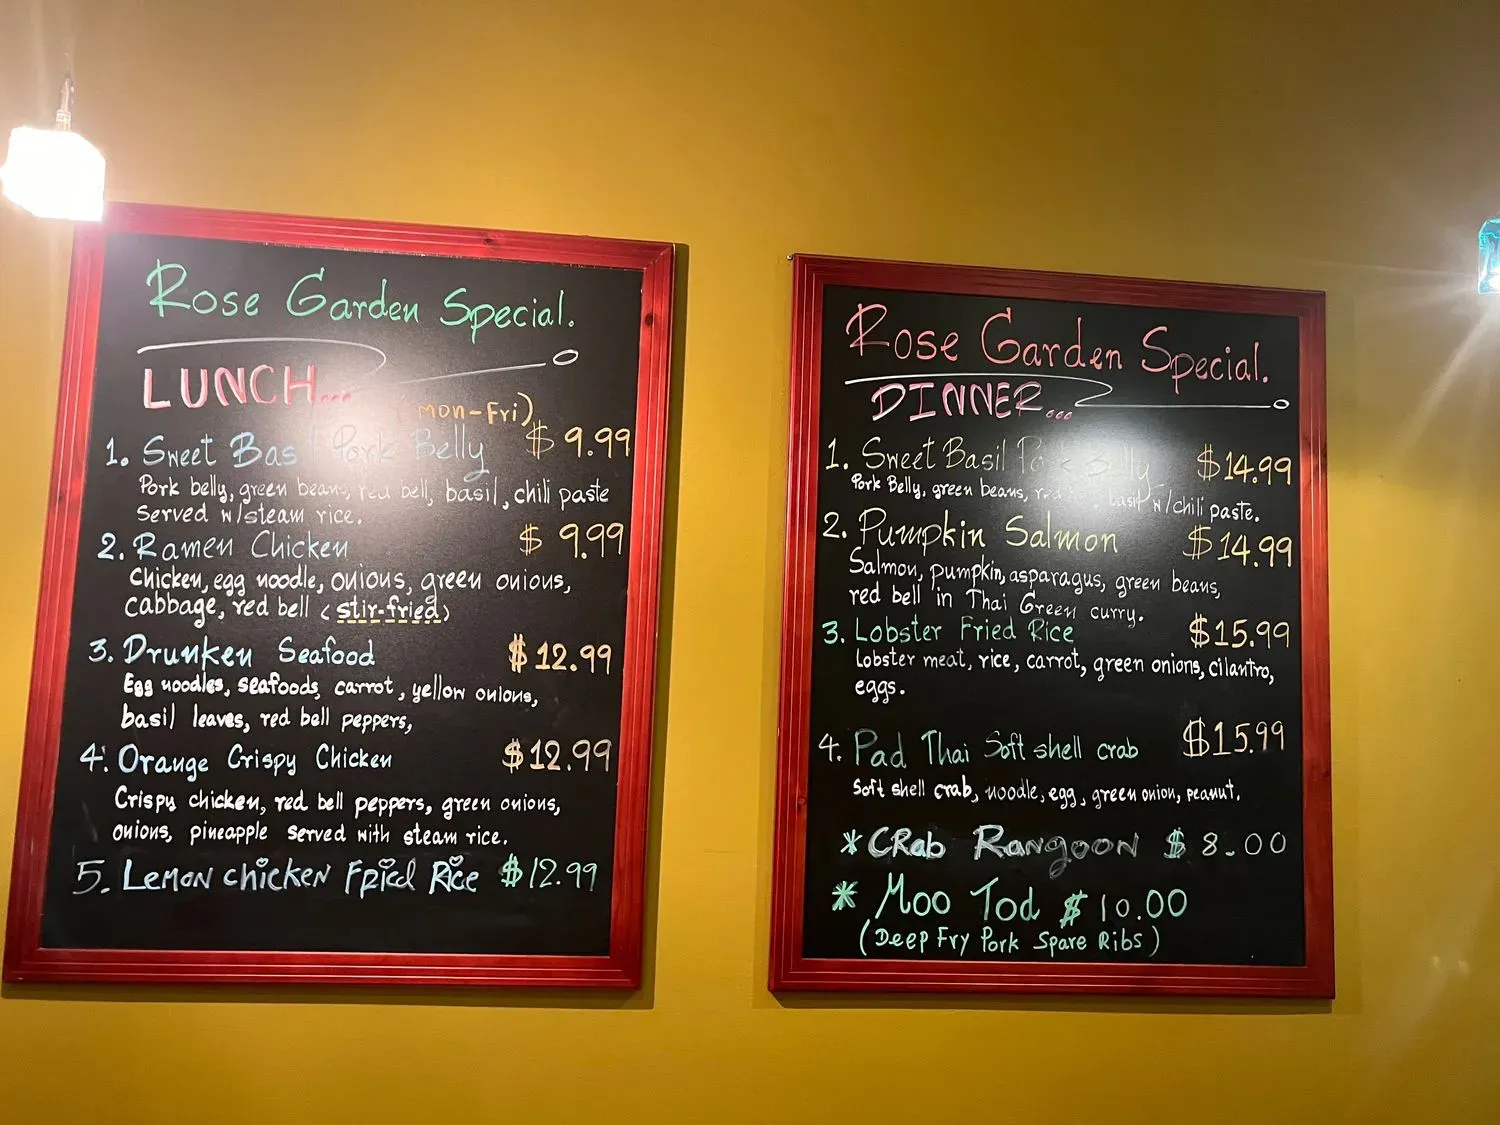 Rose Garden Special.
LUNCH...
(Mon-Fri)
1. Sweet Basil Pork Belly $9.99
Pork belly, green beans, red bell, basil, chili paste
Served w/steam rice.
2. Ramen Chicken $9.99
Chicken, egg noodle, onions, green onions,
cabbage, red bell (stir-fried)
3. Drunken Seafood $12.99
Egg noodles, seafoods, carrot, yellow onions,
basil leaves, red bell peppers,
4. Orange Crispy Chicken $12.99
Crispy chicken, red bell peppers, green onions,
onions, pineapple served with steam rice.
5. Lemon chicken Fried Rice $12.99
Rose Garden Special.
DINNER...
1. Sweet Basil Pork Belly $14.99
Pork Belly, green beans, red basil w/chili paste.
2. Pumpkin Salmon $14.99
Salmon, pumpkin, asparagus, green beans,
red bell in Thai Green curry.
3. Lobster Fried Rice $15.99
Lobster meat, rice, carrot, green onions, cilantro,
eggs.
4. Pad Thai Soft shell crab $15.99
Soft shell crab, noodle, egg, green onion, peanut.
* CRab Rangoon $8.00
* Moo Tod $10.00
(Deep Fry Pork Spare Ribs)